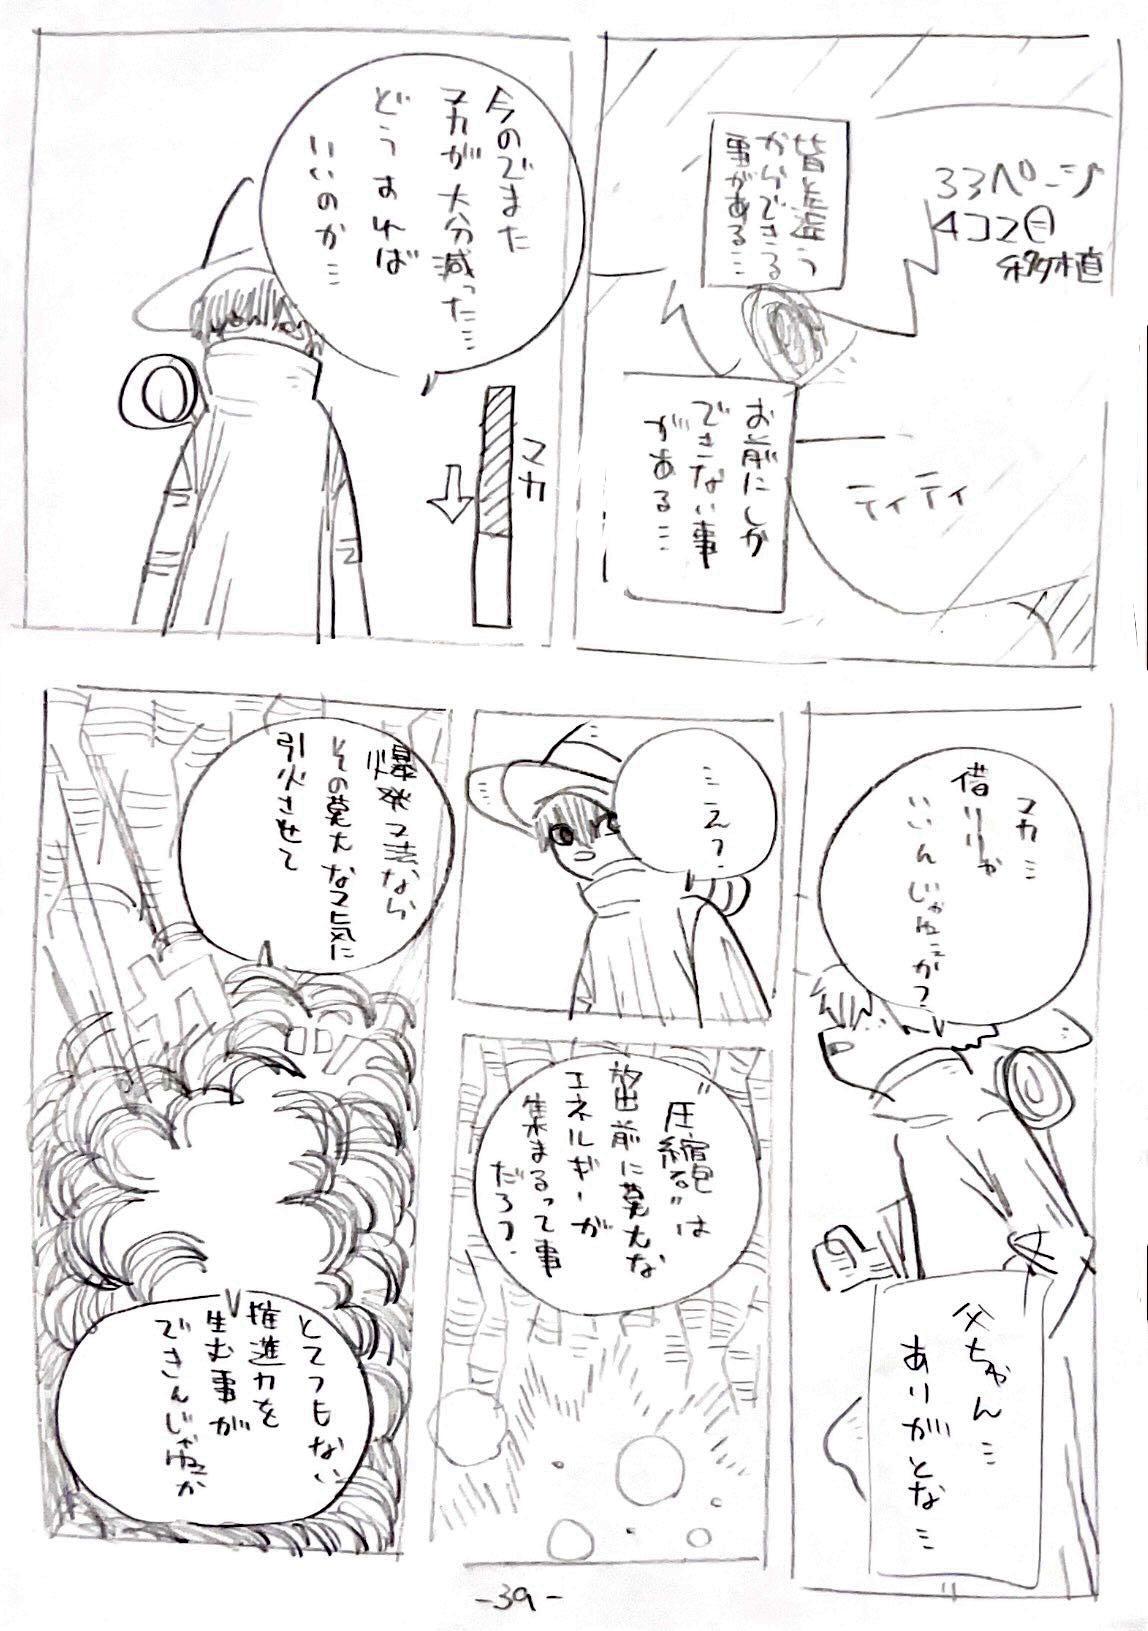 33ページ
4コマ目
移植
皆と違う
からできる
事がある…
お前にしか
できない事
がある…
ティティ
今のでまた
マ力が大分減った…
どうすれば
いいのか…
マカ
マカ…
借りりゃ
いいんじゃねェか?
父ちゃん…
ありがとな…
…え?
"圧縮砲"は
放出前に莫大な
エネルギーが
集まるって事
だろ?
爆発マ法なら
その莫大なマ気に
引火させて
カ
とてつもない
推進力を
生む事が
できんじゃねェか
-39-